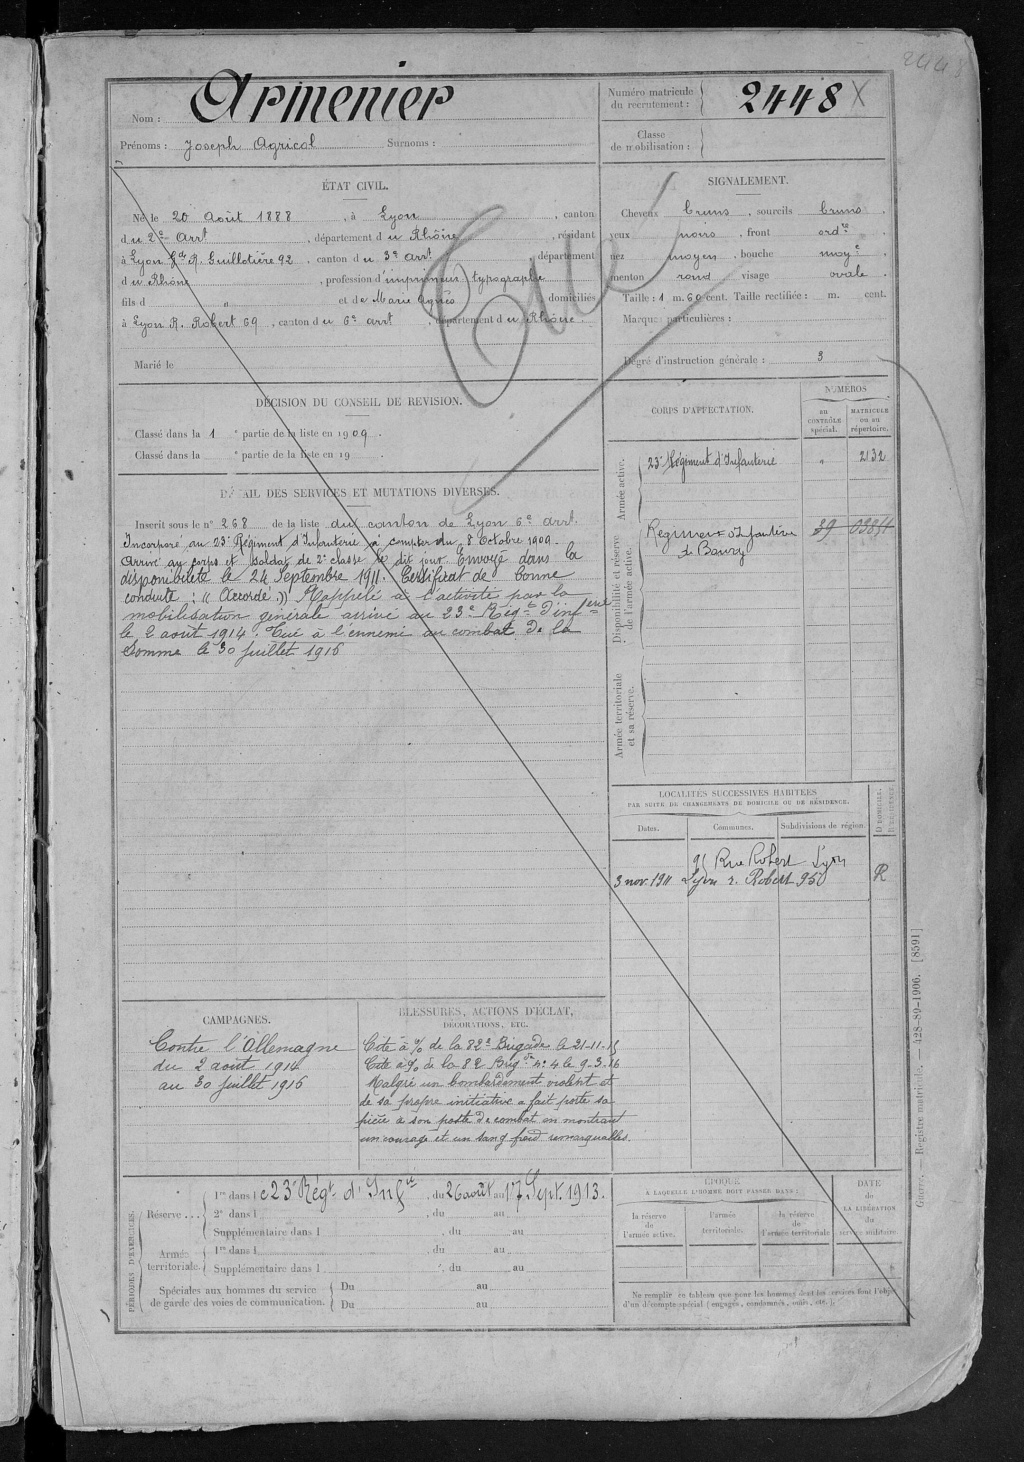 2448
Nom : Armenier
Prénoms : Joseph Agricol Surnoms :
Numéro matricule du recrutement : 2448 X
Classe de mobilisation :
ÉTAT CIVIL.
Né le 20 Août 1888, à Lyon, canton
du 2e Arrt, département du Rhône, résidant
à Lyon Gde R. Guillotière 92, canton du 3e arrt, département
du Rhône, profession d'imprimeur typographe
fils d " et de Marie Agnès domiciliés
à Lyon R. Robert 69, canton du 6e arrt, département du Rhône.
Marié le
Tué
SIGNALEMENT.
Cheveux bruns, sourcils bruns,
yeux noirs, front ordre,
nez moyen, bouche moye,
menton rond, visage ovale.
Taille : 1 m. 60 cent. Taille rectifiée : m. cent.
Marques particulières :
Degré d'instruction générale : 3
DÉCISION DU CONSEIL DE RÉVISION.
Classé dans la 1e partie de la liste en 1909.
Classé dans la e partie de la liste en 19 .
DÉTAIL DES SERVICES ET MUTATIONS DIVERSES.
Inscrit sous le n° 268 de la liste du canton de Lyon 6e arrt.
Incorporé au 23e Régiment d'Infanterie à compter du 8 Octobre 1909.
Arrivé au corps et soldat de 2e classe le dit jour. Envoyé dans la
disponibilité le 24 Septembre 1911. Certificat de bonne
conduite : (( Accordé )) Rappelé à l'activité par la
mobilisation générale arrivé au 23e Régt d'infterie
le 2 août 1914. Tué à l'ennemi au combat de la
Somme le 30 juillet 1916
CORPS D'AFFECTATION.
NUMÉROS
au CONTRÔLE spécial.
MATRICULE ou au répertoire.
Armée active.
23e Régiment d'Infanterie " 2132
Disponibilité et réserve de l'armée active.
Régiment d'Infanterie 39
de Bourg
Armée territoriale et sa réserve.
LOCALITÉS SUCCESSIVES HABITÉES
PAR SUITE DE CHANGEMENTS DE DOMICILE OU DE RÉSIDENCE.
Dates. Communes. Subdivisions de région. D. DOMICILE. R. RÉSIDENCE.
95 Rue Robert Lyon
3 nov. 1911 Lyon r. Robert 95 R
CAMPAGNES.
Contre l'Allemagne
du 2 août 1914
au 30 juillet 1916
BLESSURES, ACTIONS D'ÉCLAT,
DÉCORATIONS, ETC.
Cité à % de la 82e Brigade le 21-11-15
Cité à % de la 82 Brigde n° 4 le 9-3-16
Malgré un bombardement violent et
de sa propre initiative a fait porté sa
pièce à son poste de combat en montrant
un courage et un sang froid remarquables.
PÉRIODES D'EXERCICES.
Réserve ... 1re dans le 23e Régt d'Infrie, du 26 août au 17 Sept. 1913.
2e dans l , du au .
Supplémentaire dans l , du au
Armée territoriale. 1re dans l du au
Supplémentaire dans l , du au
Spéciales aux hommes du service de garde des voies de communication. Du au
Du au
ÉPOQUE
À LAQUELLE L'HOMME DOIT PASSER DANS :
la réserve de l'armée active.
l'armée territoriale.
la réserve de l'armée territoriale
DATE de LA LIBÉRATION du service militaire.
Ne remplir ce tableau que pour les hommes dont les services font l'objet
d'un décompte spécial (engagés, condamnés, omis, etc.).
Guerre. — Registre matricule. — 428-89-1906. [8591]